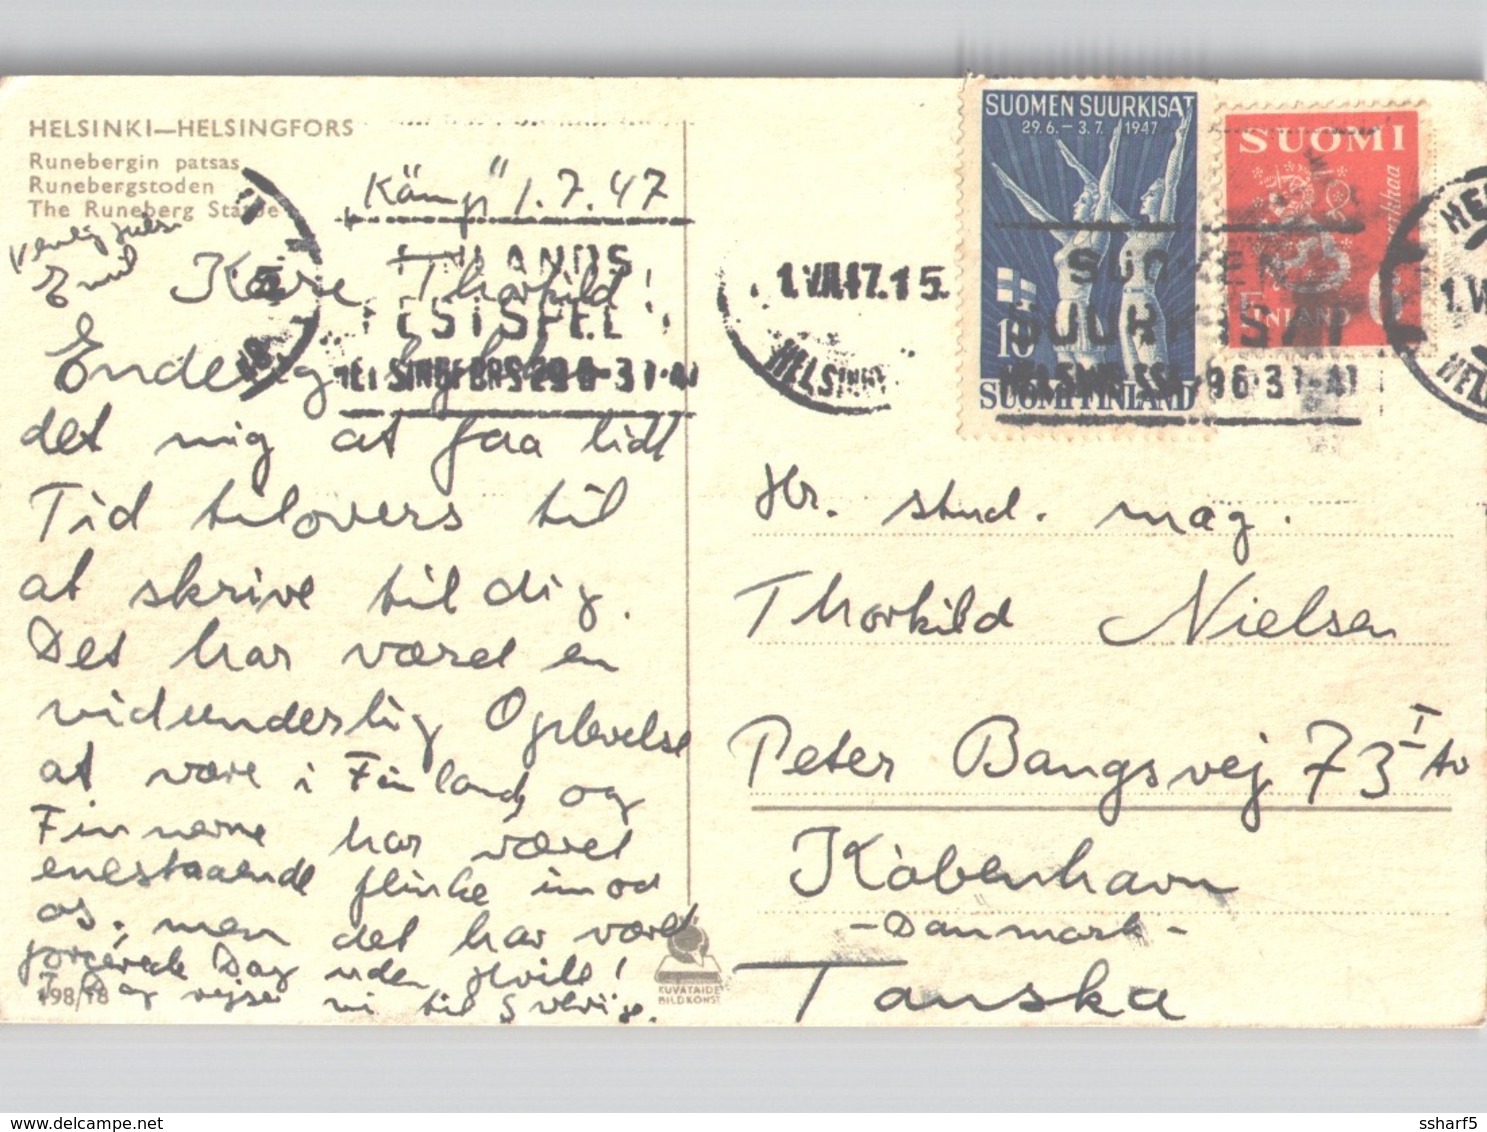 HELSINKI—HELSINGFORS
Runebergin patsas
Runebergstoden
The Runeberg Statue
"Kämp" 1.7.47
Venlig Hilsen
Emil
Kære Thorkild!
Endelig
det mig at faa lidt
Tid tilovers til
at skrive til dig.
Det har været en
vidunderlig Oplevelse
at være i Finland, og
Finnerne har været
enestaaende flinke imod
os, men det har været
forcerede Dag uden Hvile!
I Dag rejser vi til Sverige.
198/18
KUVATAIDE
BILDKONST
SUOMEN SUURKISAT
29.6.—3.7. 1947
10
SUOMI FINLAND
SUOMI
markkaa
5
FINLAND
FINLANDS
FESTSPEL
HELSINGFORS 29 6-3 7-47
1.VII.47.15.
HELSINKI
SUOMEN
SUURKISAT
HELSINKISSÄ 29 6-3 7-47
1.VI
HEL
Hr. stud. mag.
Thorkild Nielsen
Peter Bangsvej 73 I tv
København
-Danmark-
Tanska
sharf5
www.delcampe.net